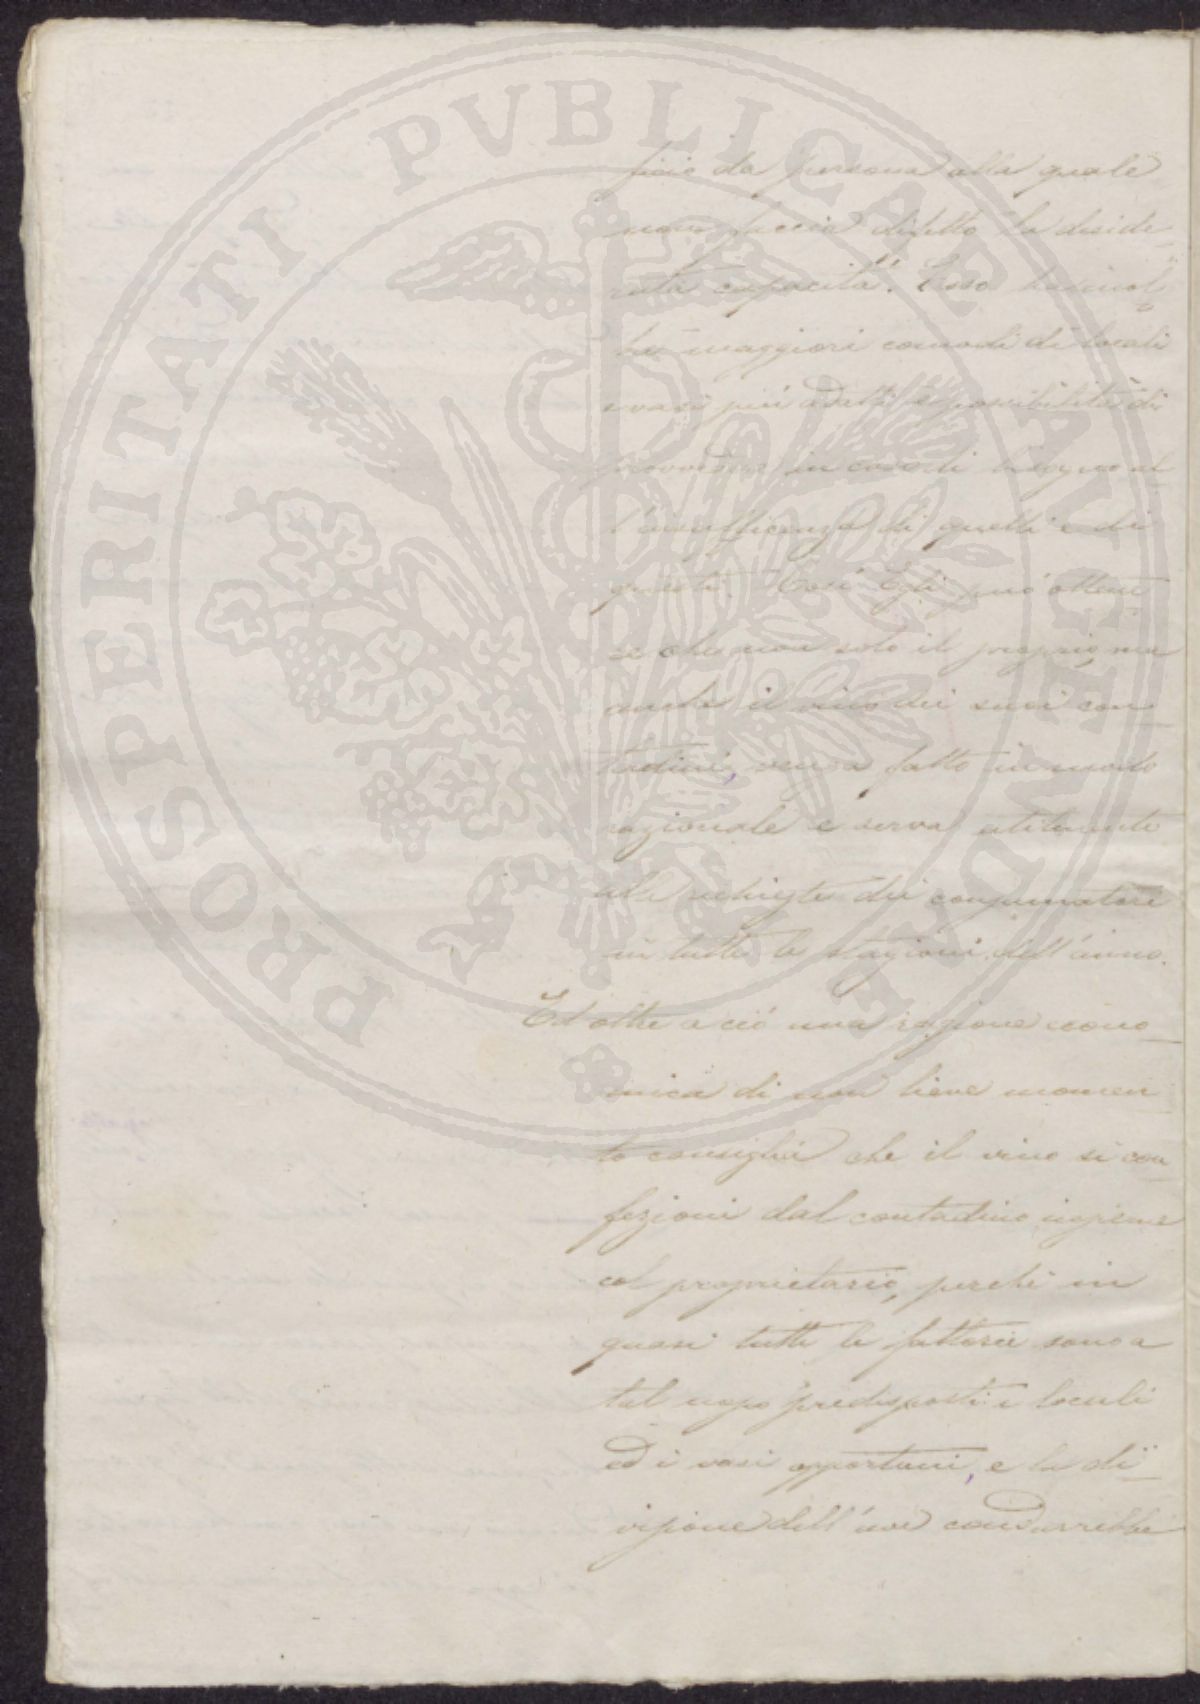 PROSPERITATI PVBLICAE AVGENDAE
ficio da persona alla quale
non faccia difetto la deside-
rata capacità. Esso ha inol-
tre maggiori comodi di locali
e vasi più adatti e possibilità di
provvedere in caso di bisogno al-
l'insufficenza di quelli e di
questi. Così Egli può ottene-
re che non solo il proprio, ma
anche il vino dei suoi con-
tadini, venga fatto in modo
razionale e serva utilmente
alle richieste dei consumatori
in tutte le stagioni dell'anno.
Ed oltre a ciò una ragione econo-
mica di non lieve momen-
to consiglia che il vino si con-
fezioni dal contadino insieme
col proprietario, perché in
quasi tutte le fattorie sono a
tal uopo predisposti i locali
ed i vasi opportuni, e la di-
visione dell'uve condurrebbe